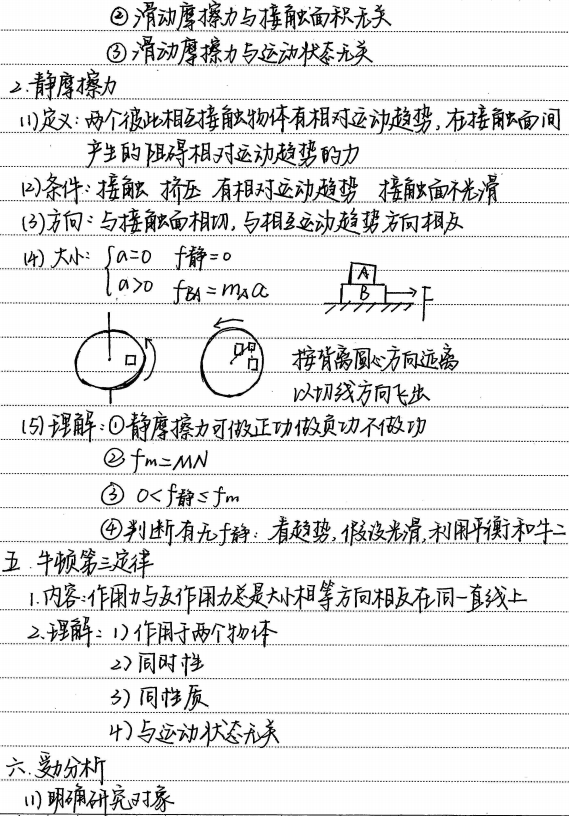 ②滑动摩擦力与接触面积无关
③滑动摩擦力与运动状态无关
2.静摩擦力
(1)定义:两个彼此相互接触物体有相对运动趋势,在接触面间
产生的阻碍相对运动趋势的力
(2)条件:接触 挤压 有相对运动趋势 接触面不光滑
(3)方向:与接触面相切,与相互运动趋势方向相反
(4)大小: { a=0 f静=0
a>0 fBA=mAa
A
B
F
按背离圆心方向远离
以切线方向飞出
(5)理解:①静摩擦力可做正功做负功不做功
②fm=MN
③ 0<f静≤fm
④判断有无f静: 看趋势,假设光滑,利用平衡和牛二
五.牛顿第三定律
1.内容:作用力与反作用力总是大小相等方向相反在同一直线上
2.理解: 1)作用于两个物体
2)同时性
3)同性质
4)与运动状态无关
六.受力分析
(1)明确研究对象